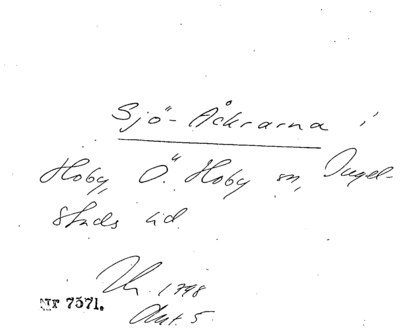 Sjö-Åkrarna i
Hoby, Ö. Hoby sn, Ingel-
stads hd.
1798
Akt. 5.
NF 7571.